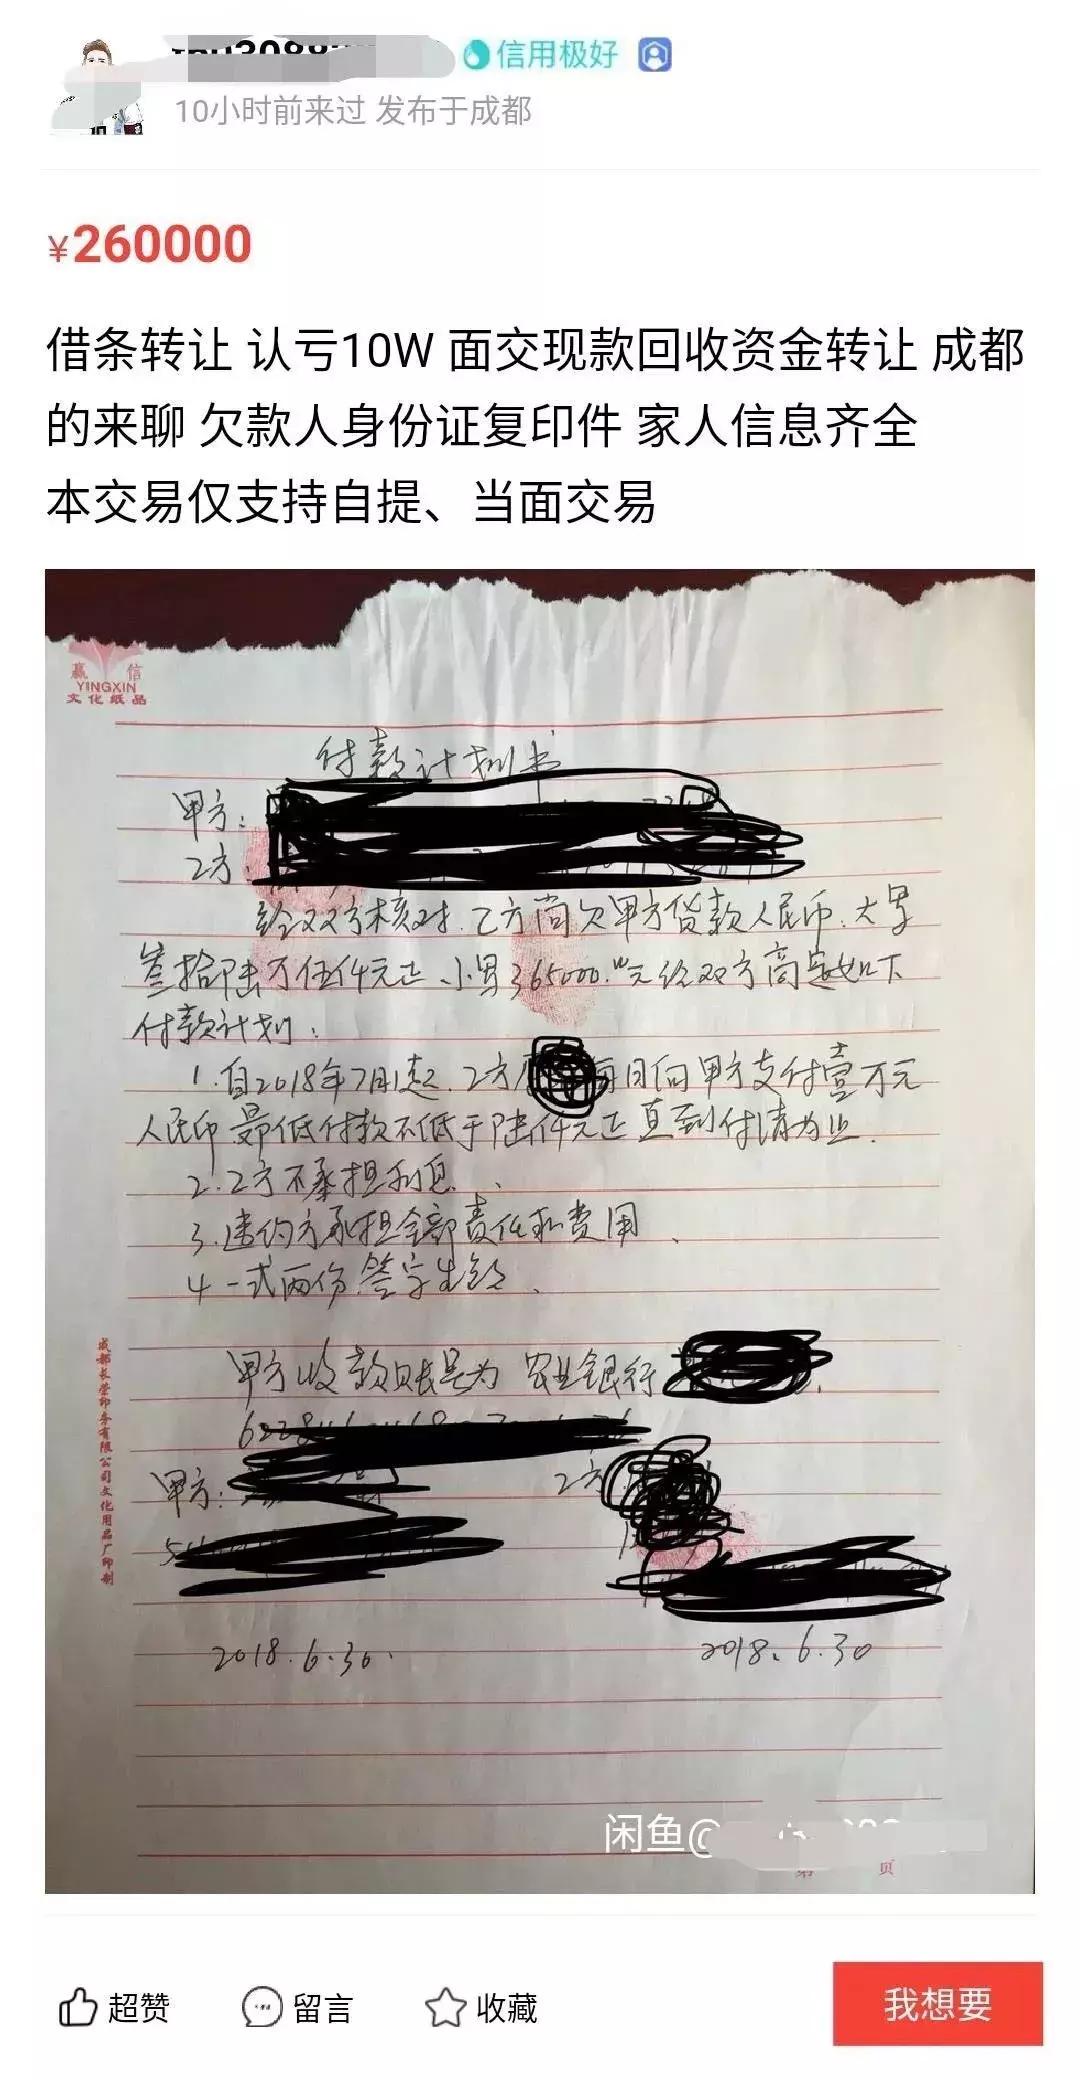 信用极好
10小时前来过 发布于成都
¥260000
借条转让 认亏10W 面交现款回收资金转让 成都
的来聊 欠款人身份证复印件 家人信息齐全
本交易仅支持自提、当面交易
赢 信
YINGXIN
文化纸品
付款计划书
甲方:
乙方:
经双方核对.乙方尚欠甲方货款人民币.大写
叁拾陆万伍仟元正、小写365000.00元经双方商定如下
付款计划:
1.自2018年7月1起.乙方 每月向甲方支付壹万元
人民币 最低付款不低于陆仟元正 直到付清为止.
2.乙方不承担利息.
3.违约方承担全部责任和费用.
4 一式两份.签字生效.
甲方收款账号为 农业银行
甲方: 乙方
2018.6.30. 2018.6.30
成都长荣印务有限公司文化用品厂印制
闲鱼@
第 页
超赞 留言 收藏 我想要